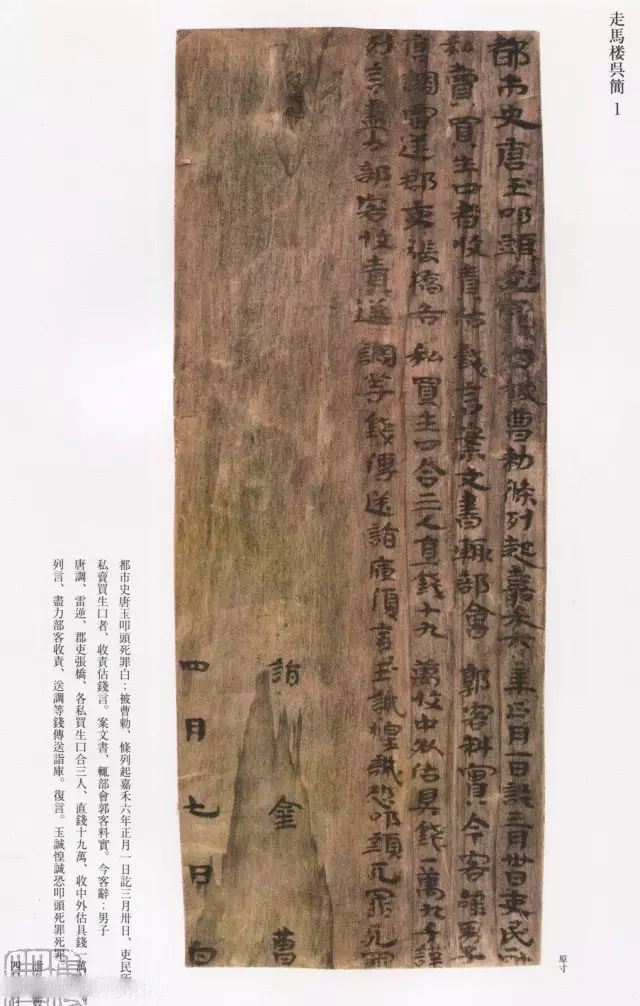 走馬楼呉簡 1
都市史唐玉叩頭死罪白被曹勅條列起嘉禾六年正月一日訖三月卅日吏民所
私賣買生口者收責估錢言案文書輒部會郭客料實今客辭男子
唐調雷逆郡吏張橋各私買生口合三人直錢十九萬收中外估具錢一萬九千謹
列言盡力部客收責送調等錢傳送詣庫復言玉誠惶誠恐叩頭死罪死罪
詣金曹
四月七日白
原寸
都市史唐玉叩頭死罪白；被曹勅、條列起嘉禾六年正月一日訖三月卅日、吏民所
私賣買生口者、收責估錢言。案文書、輒部會郭客料實。今客辭：男子
唐調、雷逆、郡吏張橋、各私買生口合三人、直錢十九萬、收中外估具錢一萬
列言、盡力部客收責、送調等錢傳送詣庫。復言。玉誠惶誠恐叩頭死罪死罪